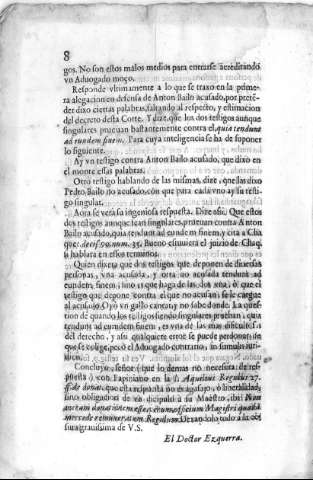 8
gos. No son estos malos medios para entrarse acreditando
vn Aduogado moço.
Responde vltimamente a lo que se traxo en la prime-
ra alegacion en defensa de Anton Bailo acusado, por preté-
der dixo ciertas palabras, faltando al respecto, y estimacion
del decreto desta Corte. Y dize, que los dos testigos aunque
singulares prueuan bastantemente contra el, quia tendunt
ad eundem finem. Para cuya inteligencia se ha de suponer
lo siguiente.
Ay vn testigo contra Anton Bailo acusado, que dixo en
el monte essas palabras.
Otro testigo hablando de las mismas, dize, que las dixo
Pedro Bailo no acusado, con que para cada vno ay su testi-
go singular.
Aora se verá su ingeniosa respuesta. Dize assi. Que estos
dos testigos aunque sean singulares, prueuan contra Anton
Bailo acusado, quia tendunt ad eundem finem, y cita a Cha
que: decis. 70. num. 35. Bueno estuuiera el juizio de Chaq.
si hablara en essos terminos.
Quien dixera que dos testigos que deponen de diuersas
personas, vna acusada, y otra no acusada tendunt ad
eundem finem; sino es que haga de las dos vna, ò que el
testigo que depone contra el que no acusan, se le cargue
al acusado. Oyò vn gallo cantar, y no sabe donde. La ques-
tion de quando los testigos siendo singulares prueban, quia
tendunt ad eundem finem, es vna de las mas dificultosas
del derecho, y assi qualquiere error se puede perdonar: lo
que se colige, pecò el Aduogado contrario, in sumulis iuri-
dicis.
Concluyo, señor (que lo demas no necessita de res-
puesta) con Papiniano en la l. Aquilius Regulus 27.
ff. de donat. que esta respuesta no es agasajo, ò liberalidad,
sino obligacion de vn dicipulo a su Maestro, ibi: Non
meram donationem esse, verum officium Magistri quadā
mercede remuneratum Regulum. Dexandolo todo a la cē
sura grauissima de V.S.
El Doctor Ezquerra.